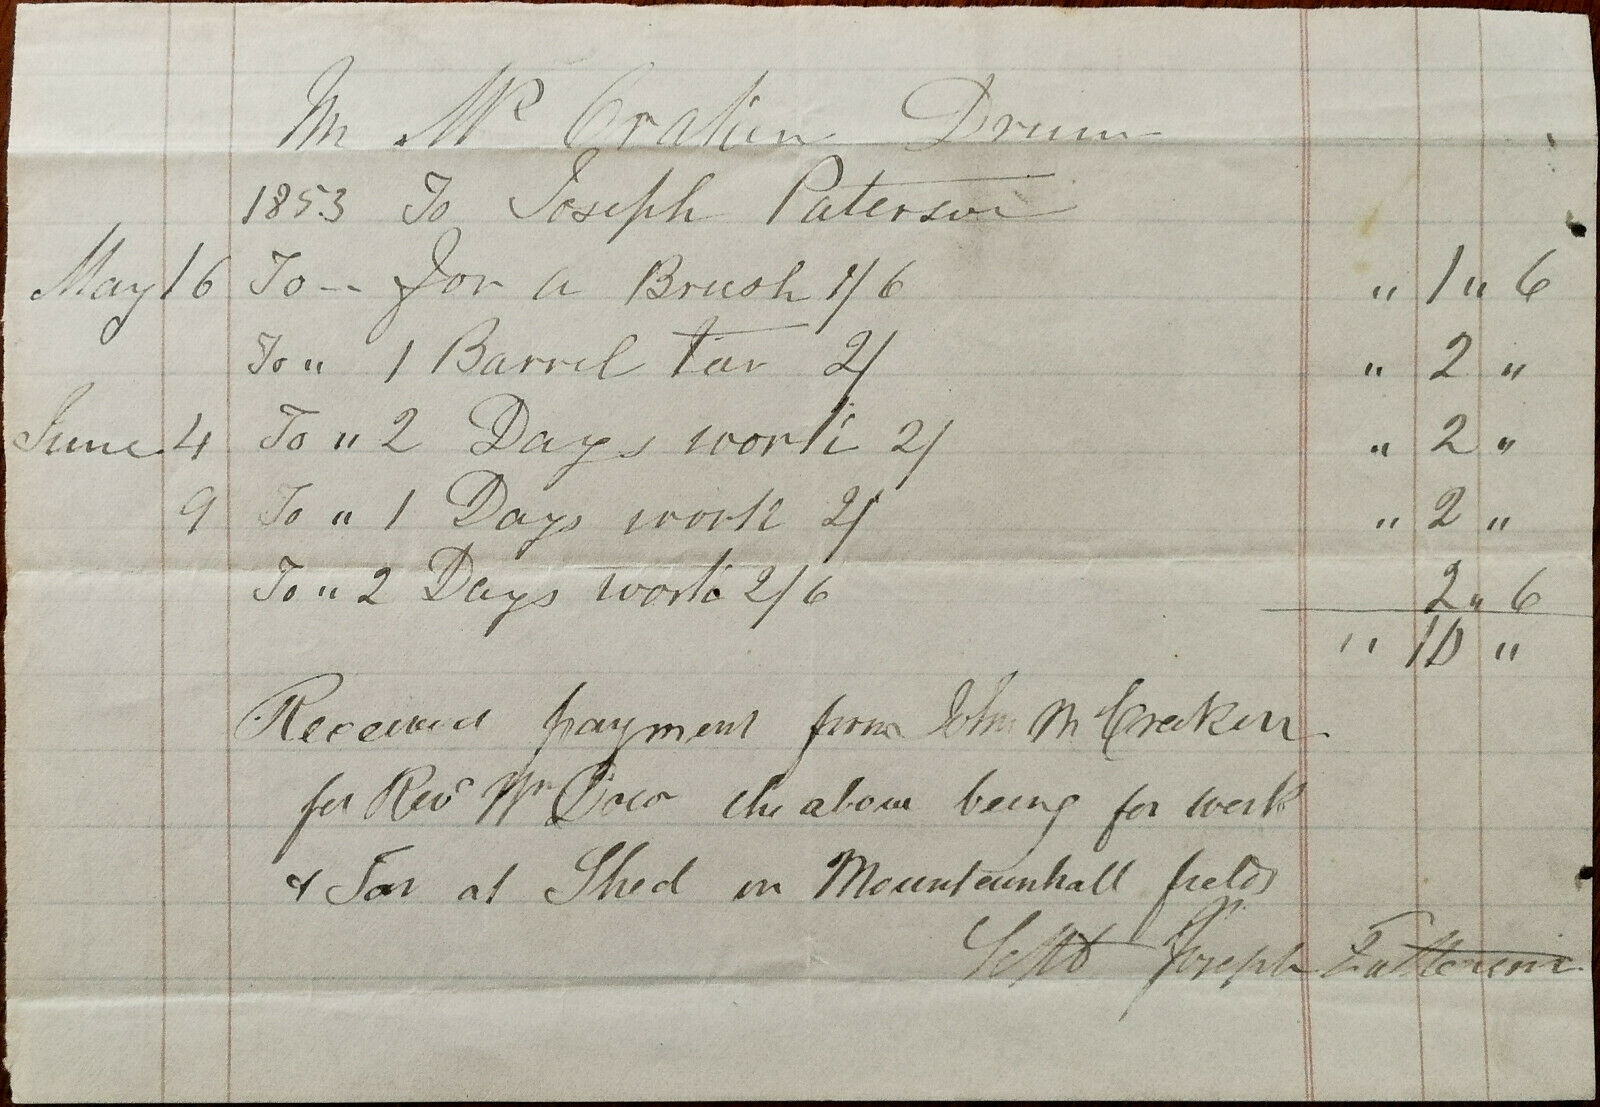 Mr McCraken Drum
1853 To Joseph Paterson
May 16 To -- for a Brush 1/6 " 1 " 6
To " 1 Barrel tar 2/ " 2 "
June 4 To " 2 Days work 2/ " 2 "
9 To " 1 Days work 2/ " 2 "
To " 2 Days work 2/6 2 " 6
" 10 "
Received payment from John McCraken
for Revd Wm the above being for work
& Tar at Shed on Mountainhall fields
Joseph Patterson